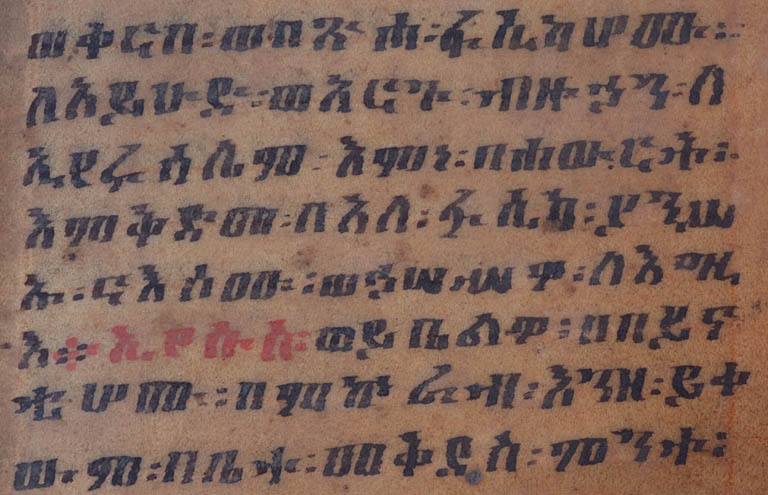 ወቀርበ፡ወበጽሐ፡ፋሲካሆሙ፡፡
ለአይሁድ፡፡ወአርጉ፡ብዙኃን፡ለ
ኢየሩሳሌም፡እምነ፡በሐውርት፡፡
እምቅድመ፡በአለ፡ፋሲካ፡
ርእሶሙ፡ወኃሠሥዎ፡ለእግዚ
እ፡፡ኢየሱስ፡ወይቤልዎ፡በበይና
ቲሆሙ፡በምኵራብ፡እንዘ፡ይቀ
ውሙ፡በቤተ፡መቅደስ፡ምንተ፡